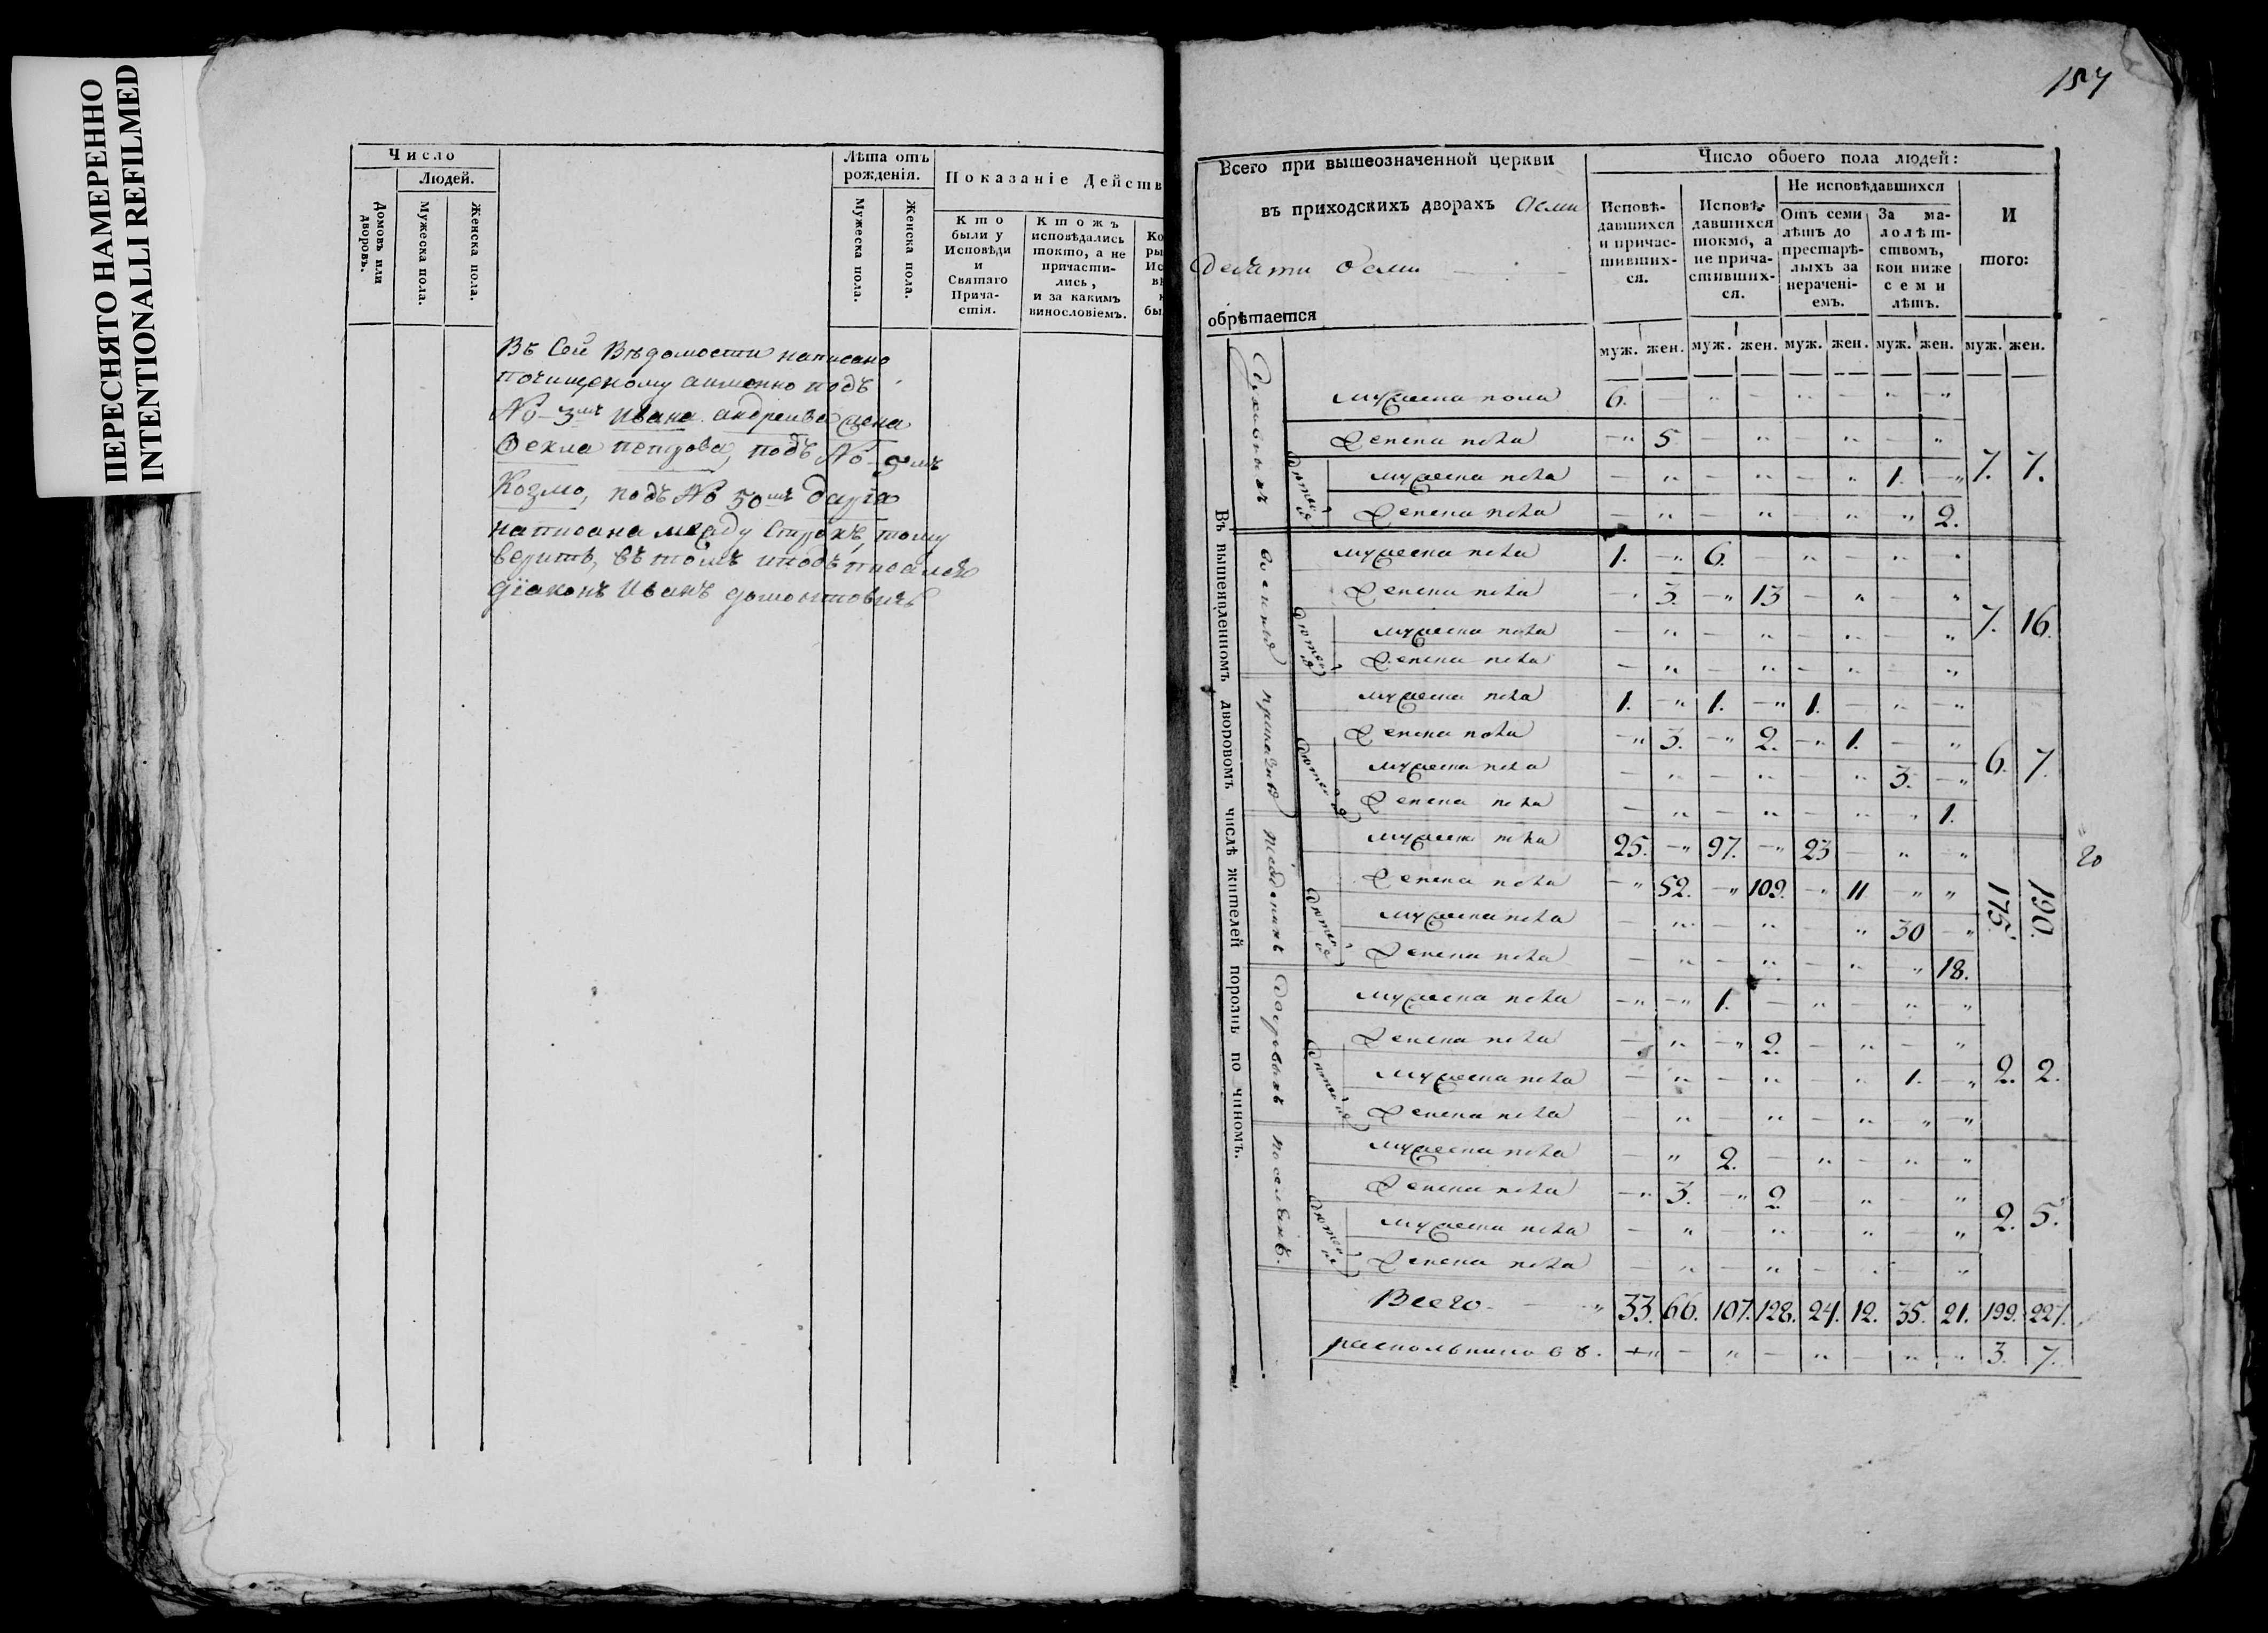 ПЕРЕСНЯТО НАМЕРЕННО
INTENTIONALLI REFILMED
Число
Людей.
Домовъ или дворовъ.
Мужеска пола.
Женска пола.
Лѣта отъ рожденія.
Мужеска пола.
Женска пола.
Показаніе Действ
Кто были у Исповѣди и Святаго Причастія.
Ктожъ исповѣдались токто, а не причастились, и за какимъ винословіемъ.
Въ Сей Вѣдомости написано
почищеному аименно подъ
No 3мъ Ивана андреива жена
Ѳекла петрова, подъ No 9мъ
Козмо, подъ No 50мъ дарїа
написана между строкъ, тому
верить, въ томъ иподъписалсѧ
дїаконъ Иванъ домонтовичъ
157
Всего при вышеозначенной церкви
въ приходскихъ дворахъ осми
десѧти осми
обрѣтается
Число обоего пола людей:
Исповѣдавшихся и причастившихся.
Исповѣдавшихся токмо, а не причастившихся.
Не исповѣдавшихся
Отъ семи лѣтъ до престарѣлыхъ за нераченіемъ.
За малолѣтствомъ, кои ниже семи лѣтъ.
И того:
муж. жен. муж. жен. муж. жен. муж. жен. муж. жен.
Въ вышепаленномъ дворовомъ числѣ жителей порознь по чиномъ.
Духовныхъ
мужеска пола 6.
Женска пола 5
Дѣтей ихъ
мужеска пола 1.
Женска пола 2.
7. 7.
военныѧ
мужеска пола 1. 6.
Женска пола 3. 13
Дѣтей ихъ
мужеска пола
Женска пола
7. 16.
приказныѧ
мужеска пола 1. 1. 1.
Женска пола 3. 2. 1.
Дѣтей ихъ
мужеска пола 3.
Женска пола 1.
6. 7.
мужеска пола 25. 97. 23
Женска пола 52. 109. 11
Дѣтей ихъ
мужеска пола 30
Женска пола 18.
175. 190.
20
Дворовыхъ
мужеска пола 1.
Женска пола 2.
Дѣтей ихъ
мужеска пола 1.
Женска пола
2. 2.
поселѧнъ.
мужеска пола 2.
Женска пола 3. 2
Дѣтей ихъ
мужеска пола
Женска пола
2. 5.
Всего 33. 66. 107. 128. 24. 12. 35. 21. 199. 227.
раскольниковъ. 3. 7.